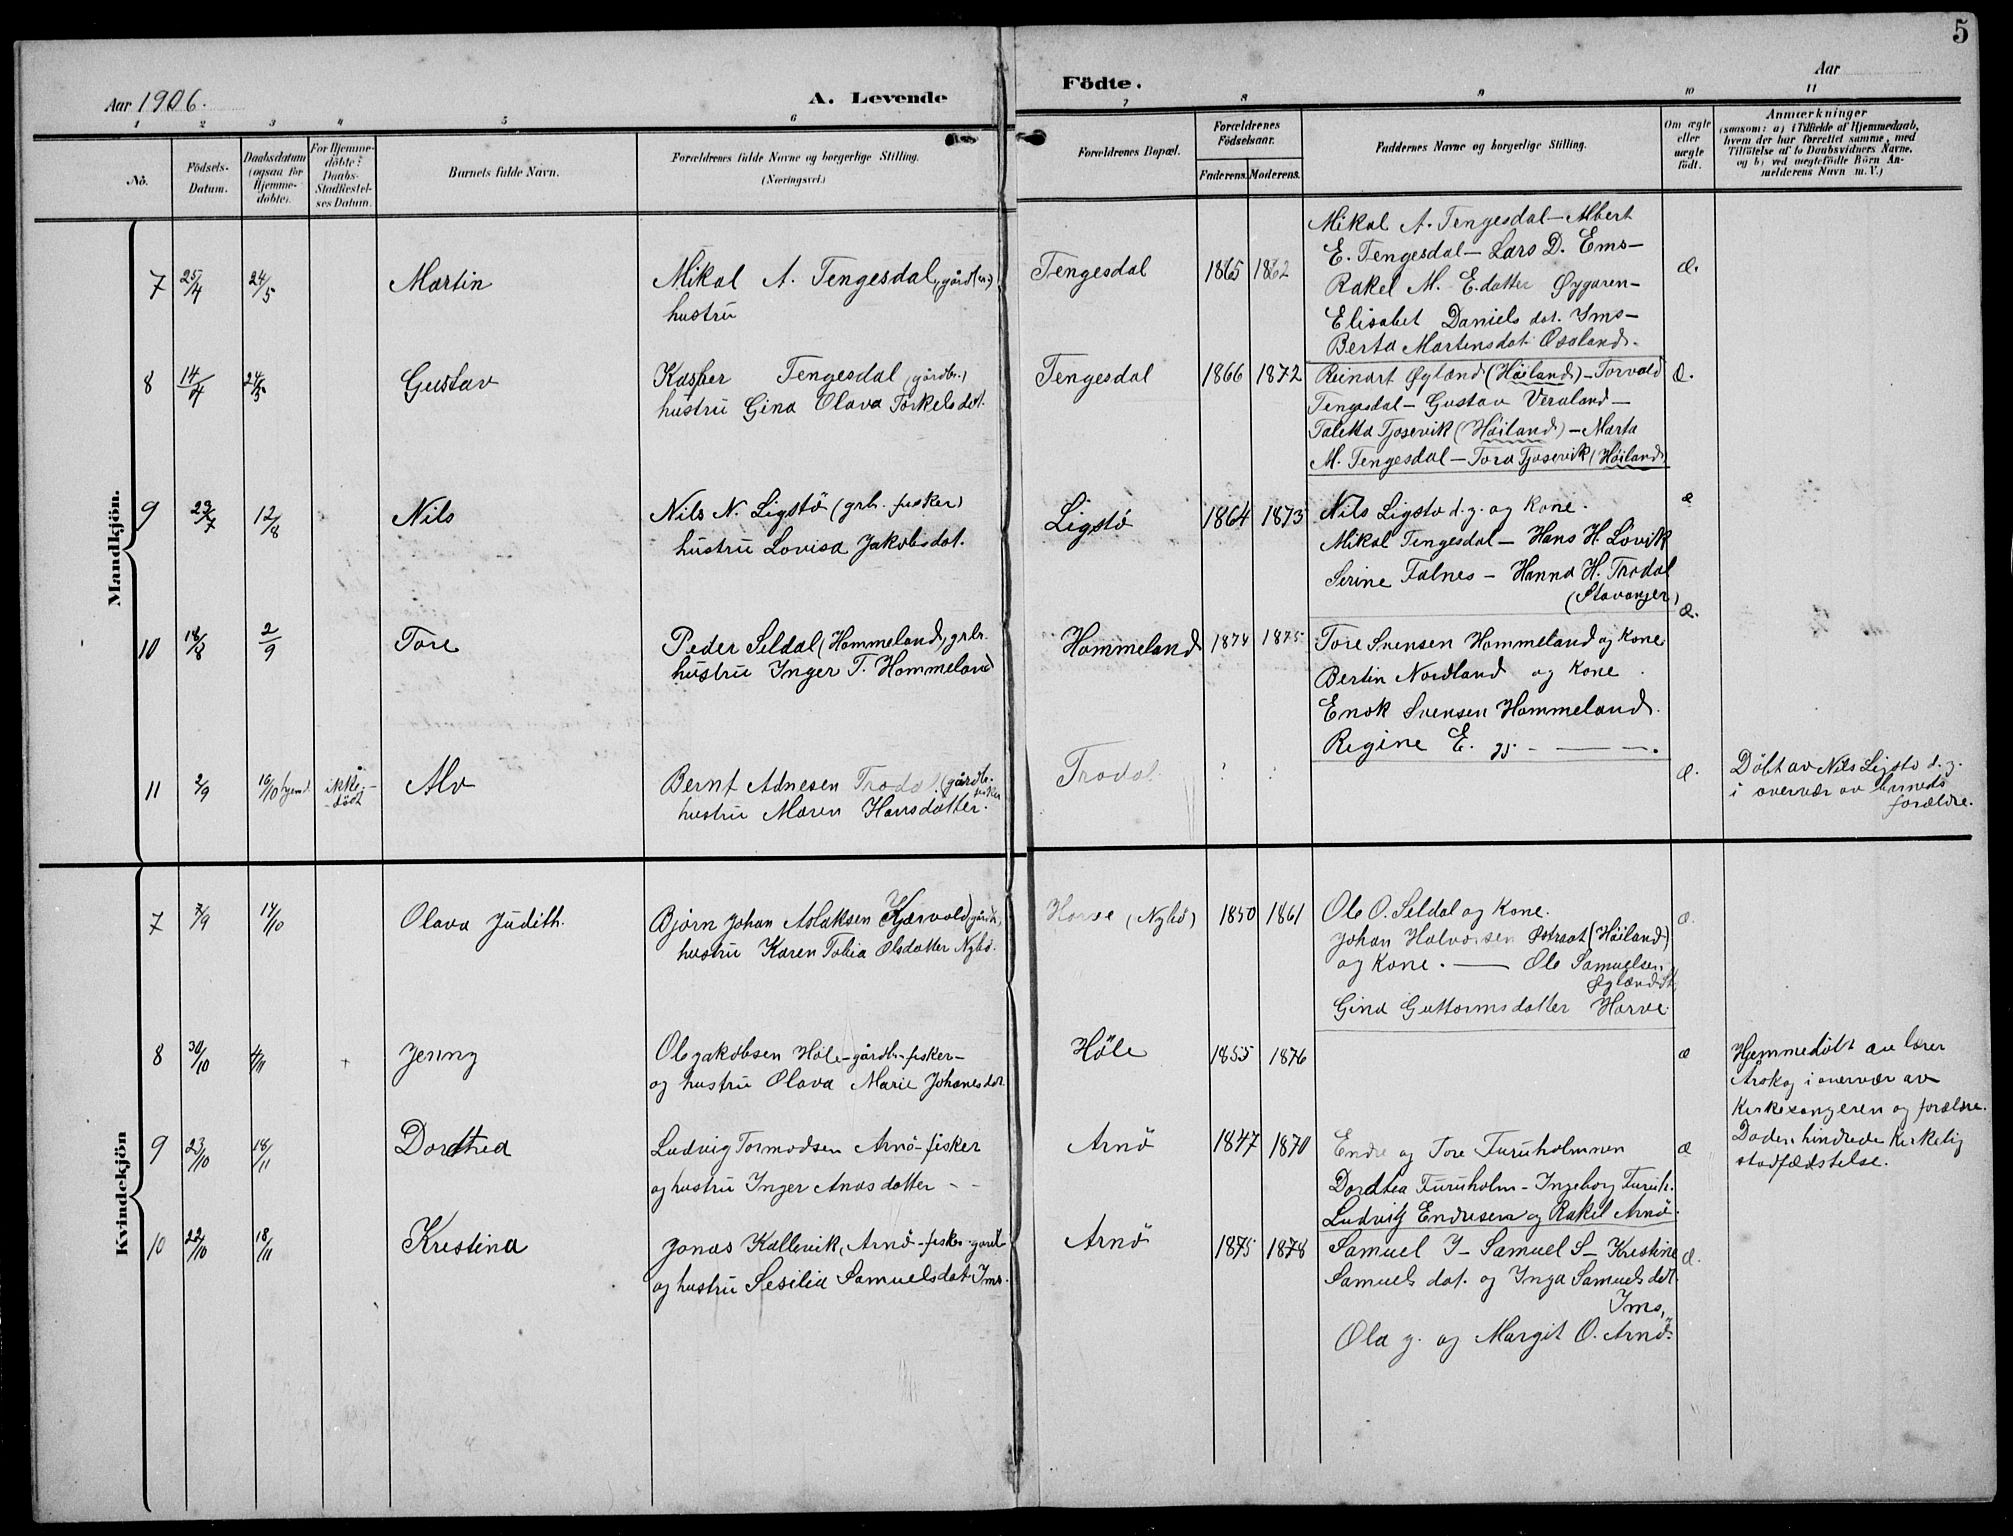 5
Aar 1906.
A. Levende
Födte.
Aar
1 2 3 4 5 6 7 8 9 10 11
No.
Födsels-Datum.
Daabsdatum (ogsaa for Hjemme-döbte).
For Hjemme-döbte: Daabs-Stadfæstel-ses Datum.
Barnets fulde Navn.
Forældrenes fulde Navne og borgerlige Stilling.
(Næringsvei.)
Forældrenes Bopæl.
Forældrenes Födselsaar.
Faderens. Moderens.
Faddernes Navne og borgerlige Stilling.
Om ægte eller uægte födt.
Anmærkninger
(saasom: a) i Tilfælde af Hjemmedaab,
hvem der har forrettet samme, med
Tilföielse af to Daabsvidners Navne,
og b) ved uegtefödte Börn An-
melderens Navn m. V.)
Mandkjön.
7 25/4 24/5 Martin
Mikal A. Tengesdal, gårdbr.)
hustru
Tengesdal 1865 1862
Mikal A. Tengesdal – Albert
E. Tengesdal – Lars D. Ems –
Rakel M. E.datter Øygaren –
Elisabet Daniels dat. Ims –
Berta Martensdat. Osaland.
æ.
8 14/4 24/5 Gustav
Kasper Tengesdal (gårdbr.)
hustru Gina Olava Torkelsdat.
Tengesdal 1866 1872
Reinart Øglænd (Höiland) – Torvald
Tengesdal – Gustav Veraland –
Taletta Tjosevik (Höiland) – Marta
M. Tengesdal – Tora Tjosevik (Höiland)
æ.
9 12/8 Nils
Nils N. Ligstö (grb. fisker)
hustru Lovisa Jakobsdat.
Ligstö 1864 1873
Nils Ligstö d.y. og kone.
Mikal Tengesdal – Hans H. Lövik
Serine Falnes – Hanna H. Trodal
(Stavanger)
æ
10 18/8 2/9 Tore
Peder Seldal (Hommeland, grbr.
hustru Inger T. Hommeland
Hommeland 1874 1875
Tore Svensen Hommeland og kone
Bertin Nordland og kone.
Enok Svensen Hommeland.
Regine E.
æ.
11 2/9 16/10 hjemd. ikke döbt Alv
Bernt Adnesen Trodal (gårdb. fisker
hustru Maren Hansdatter.
Trodal
æ.
Döbt av Nils Ligstö d.y.
i overvær av barnets
forældre.
Kvindekjön
7 7/9 14/10 Olava Judith.
Björn Johan Aslaksen Kjærvold, gårdb.,
hustru Karen Tobia Olsdatter Nybö.
Horve (Nybö) 1850 1861
Ole O. Seldal og kone.
Johan Halvorsen Østraat (Höiland)
og kone. — Ole Samuelsen
Øglænd
Gina Guttormsdatter Horve.
æ.
8 30/10 4/11 Jenny
Ole Jakobsen Höle – gårdb. – fisker –
og hustru Olava Marie Johanesdat.
Höle 1855 1876
æ
Hjemmedöbt av lærer
Årskog i overvær av
kirkesangeren og forældre.
Döden hindrede kirkelig
stadfæstelse.
9 23/10 18/11 Dordthea
Ludvig Tormodsen Arnö – fisker
og hustru Inger Anasdatter – –
Arnö 1847 1870
Endre og Tore Furuholmmen
Dordtea Furuholm – Ingeborg Furuh.
Ludvig Endresen og Rakel Arnö.
æ
10 22/10 18/11 Kristina
Jonas Kallevik, Arnö – fisker – gardb.
og hustru Sesilia Samuelsdat. Ims.
Arnö 1875 1878
Samuel J – Samuel S – Kristine
Samuels dat. og Inga Samuelsdat.
Ims,
Ola J. og Margit O. Arnö.
æ.